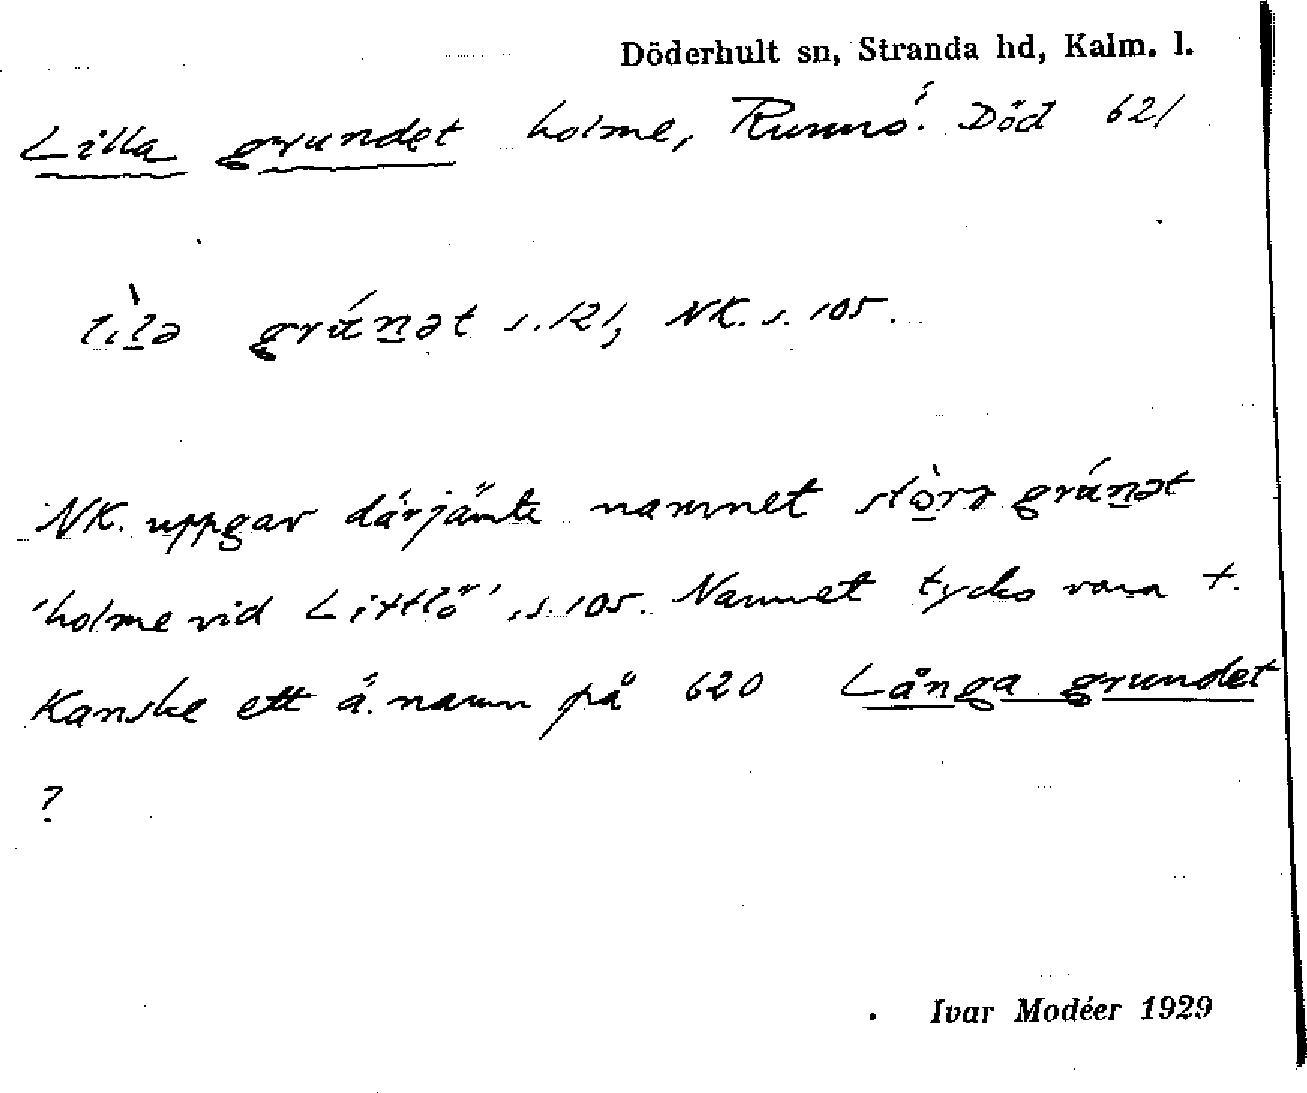 Döderhult sn, Stranda hd, Kalm. l.
Lilla grundet holme, Runnö. Död 621
lìlə grúnət s. 121, NK. s. 105.
NK. uppgav därjämte namnet stòrə grúnət
'holme vid Littlö', s. 105. Namnet tycks vara +.
Kanske ett ä. namn på 620 Långa grundet
?
Ivar Modéer 1929